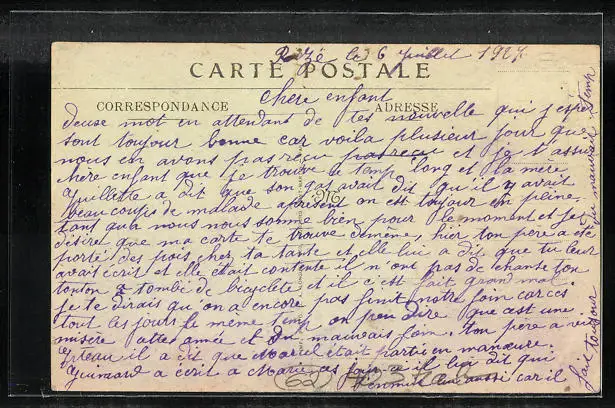 Rezé le 6 juillet 1927
CARTE POSTALE
CORRESPONDANCE
ADRESSE
Chère enfant
deuse mot en attendant de tes nouvelle qui j'espè
sont toujour bonne car voila plusieur jour que
nous en avons pas reçu pas reçu et je t'assure
chère enfant que je trouve le temp long et la mère
Juillette a dit que son gas avait dit qu'il y avait
beaucoups de malade apresent on est toujour en peine
tant qu'a nous nous somme bien pour le moment et je
désirer que ma carte te trouve demême, hier ton père a été
porté des pois cher ta tante et elle lui a dit que tu leur
avait écrit et elle était contente il n'ont pas de chanse ton
tonton a tombé de bicyclete et il c'est fait grand mal
je te dirais qu'on a encore pas finit notre foin car ces
tout les jours le même temp on peu dire que cest une
misère atte année et du mauvais foin. ton père a vu
pteau il a dit que Marcel était partie en manœuvre.
Guimard a écrit a Marie
il lui dit qui
aussi car il
fait toujour
du mauvais temp
62